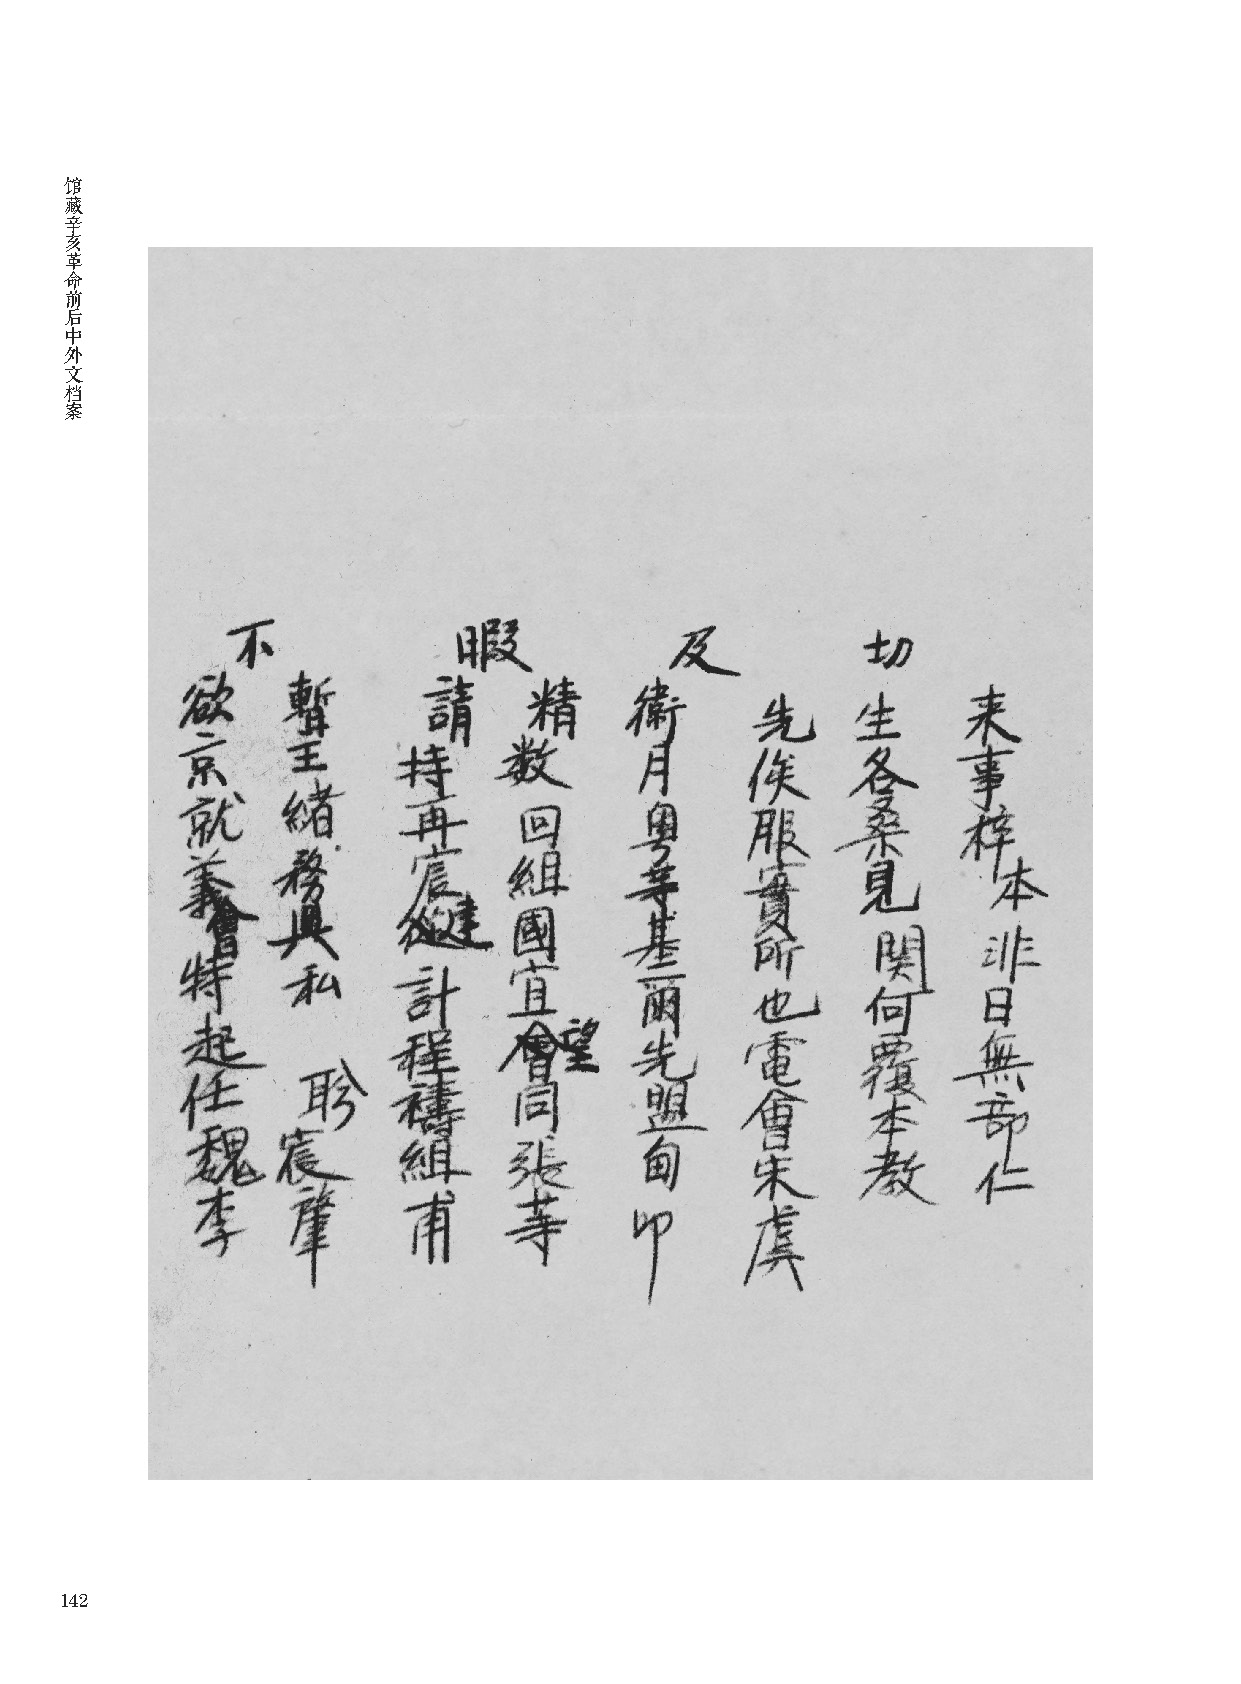 馆藏辛亥革命前后中外文档案
来事梓本非日無部仁
切
生各桑見関何覆本教
先俟服實所也電會朱虞
及
衛月粤等基爾先盟甸印
精数回組國宜望同張等
暇
請持再宸健計程禱組甫
暫王緒務與私 聆宸肇
不
欲京就義會特起任魏李
142